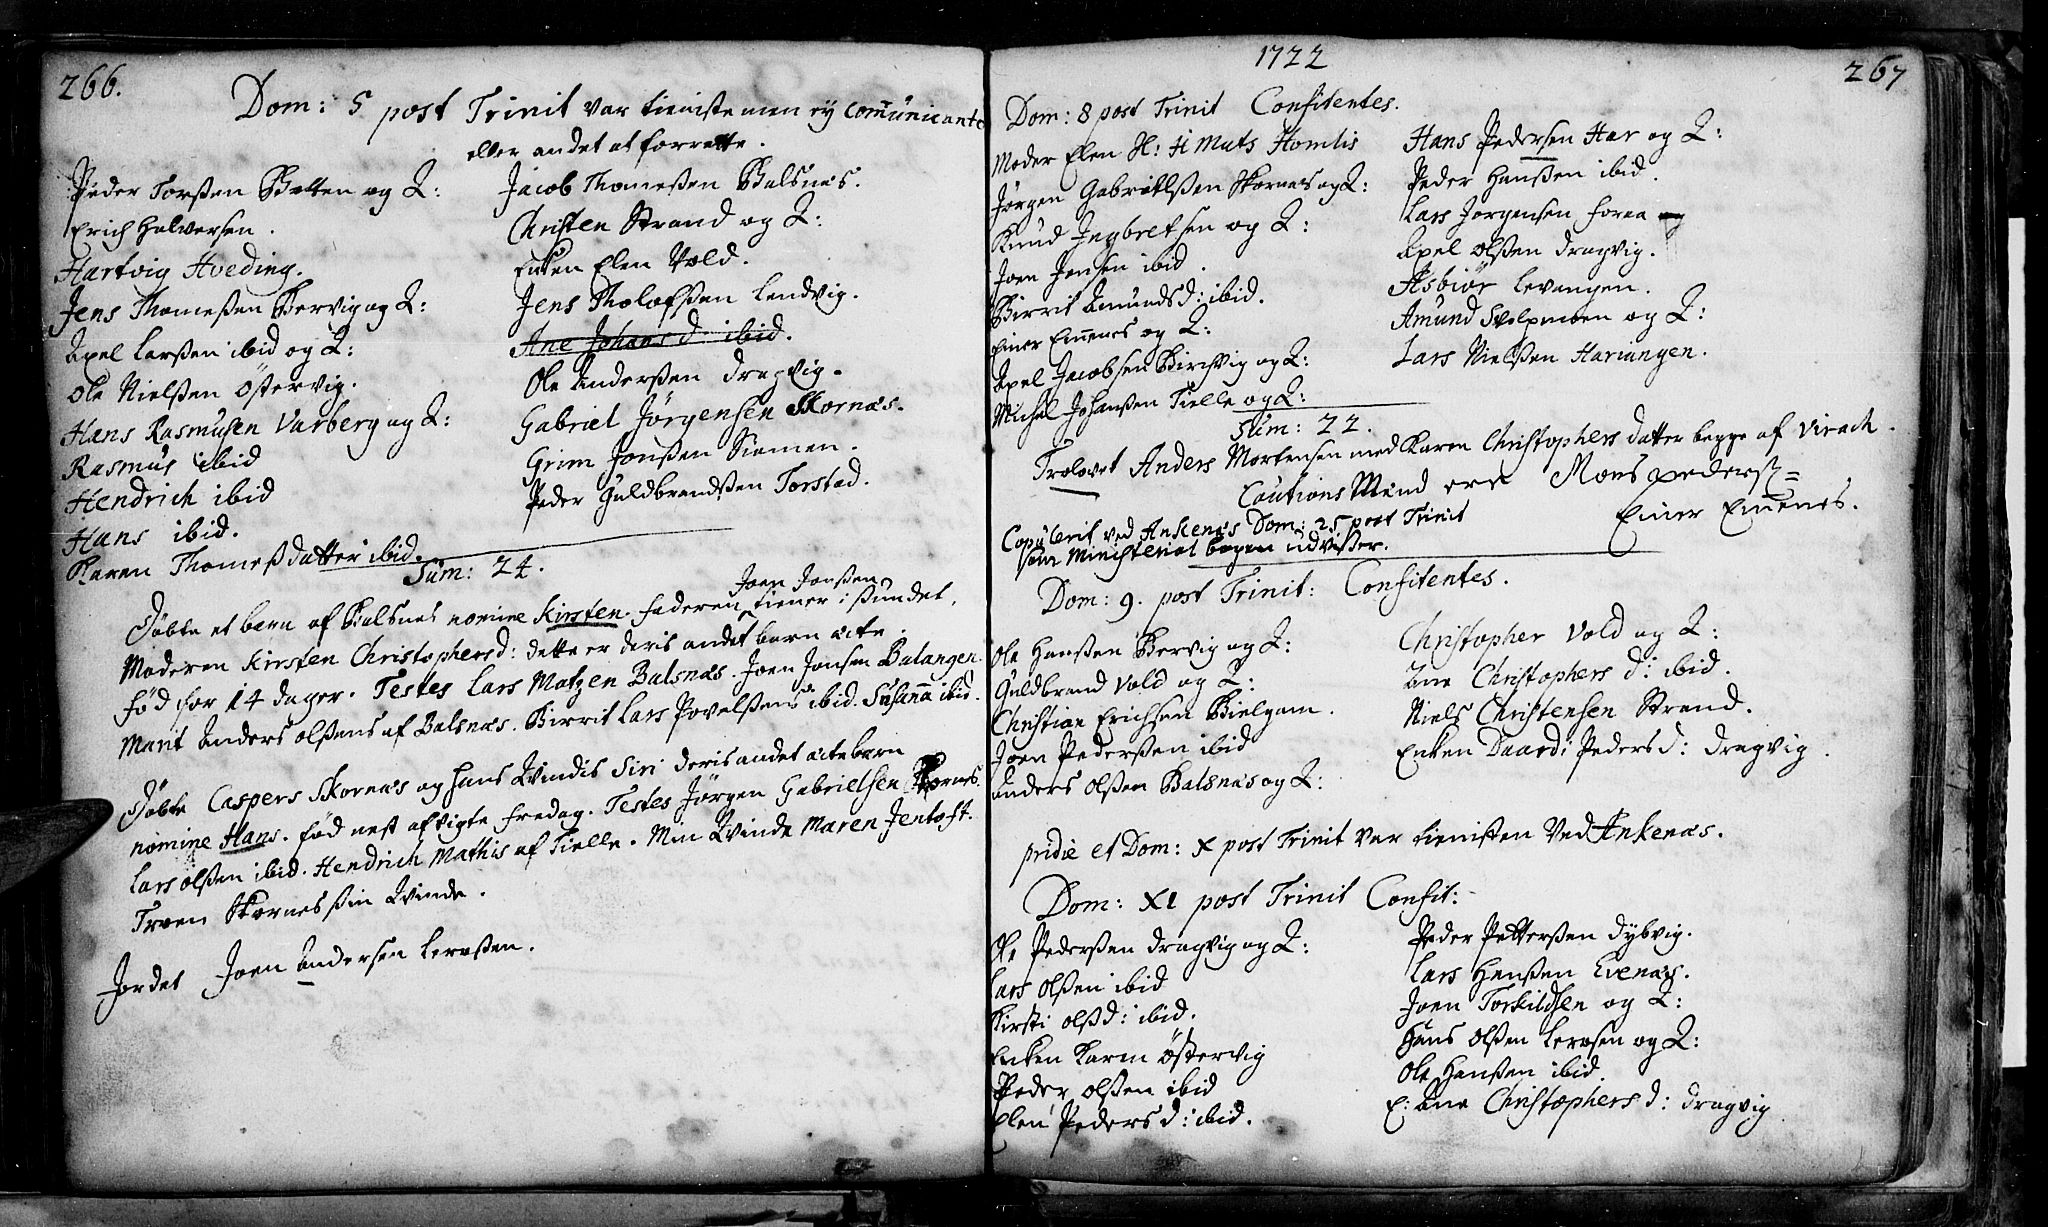 266.
Dom: 5 post Trinit var tieniste men ey com̄unicante
eller andet at forrette.
Peder Torßen Botten og Q:
Erich Halversen.
Hartvig Hveding.
Jens Thomeßen Bervig og Q:
Axel Larßen ibid og Q:
Ole Nielßen Østervig.
Hans Rasmusen Varberg og Q:
Rasmus ibid
Hendrich ibid
Hans ibid.
Karen Thomeßdatter ibid.
Jacob Thomeßen Balsnæs.
Christen Strand og Q:
Enken Elen Vold.
Jens Tholofsßen Lendvig.
Ane Johans d: ibid.
Ole Anderßen dragvig.
Gabriel Jørgensen Skornæs.
Grim Jonßen Siemen.
Peder Guldbrandßen Torstad.
Sum: 24.
Joen Jonßen
Døbte et barn af Balsnæs nomine Kirsten. faderen tiener i sundet,
Moderen Kirsten Christophersd: dette er deris andet barn ægte.
fød for 14 dager. Testes Lars Matzen Balsnæs. Joen Jonsen Balangen.
Marit Anders olßens af Balsnæs. Birrit Lars Povelßens ibid. Susanna ibid.
Døbte Caspers Skornæs og hans Qvindis Siri deris andet ægte barn
nomine Hans. fød nest afvigte fredag. Testes Jørgen Gabrielsen Skornes.
Lars olßen ibid. Hendrich Mathis af Tielle. Min Qvinde Maren Jentoft.
Troen Skornes sin Qvinde.
Jordet Joen Andersen Leroßen.
1722
267
Dom: 8 post Trinit Confitentes.
Moder Elen H: H Muts Homlis
Jørgen Gabrielßen Skornæs og Q:
Knud Ingbretsen og Q:
Joen Jensen ibid.
Birrit Amunds d: ibid.
Einer Em̄enes og Q:
Axel Jacobsen Birchvig og Q:
Michel Johanßen Tielle og Q:
Hans Pedersen Har og Q:
Peder Hanßen ibid.
Lars Jørgensen foraa og
Axel olßen dragvig.
Asbiør Levangen.
Amund Skolpmoen og Q:
Lars Nielßen Hariangen.
Sum: 22.
Trolovet Anders Mortensen med Karen Christophers datter begge af Virach.
Cautions Mænd ere Mons pederß=
Einer Em̄enes.
Copulerit ved Ankenæs Dom: 25 post Trinit
som Ministerial bogen udvißer.
Dom: 9. post Trinit: Confitentes.
Ole Hanßen Bervig og Q:
Guldbrand Vold og Q:
Christian Erichsen Bielgam.
Joen Pederßen ibid
Anders olßen Balsnæs og Q:
Christopher Vold og Q:
Ane Christophers d: ibid.
Niels Christensen Strand.
Enken Daardi Peders d: dragvig.
pridie et Dom: X post Trinit var tienisten Ved Ankenæs.
Dom: XI post Trinit Confit:
Ole Pederßen dragvig og Q:
Lars olßen ibid
Kirsti olß d: ibid.
Enken Karen Østervig
Peder olßen ibid
Elen Peders d: ibid.
Peder Petterßen Dybvig.
Lars Hanßen Evenæs.
Joen Torkildßen og Q:
Hans olßen Lerosen og Q:
Ole Hanßen ibid.
E: Ane Christophers d: dragvig